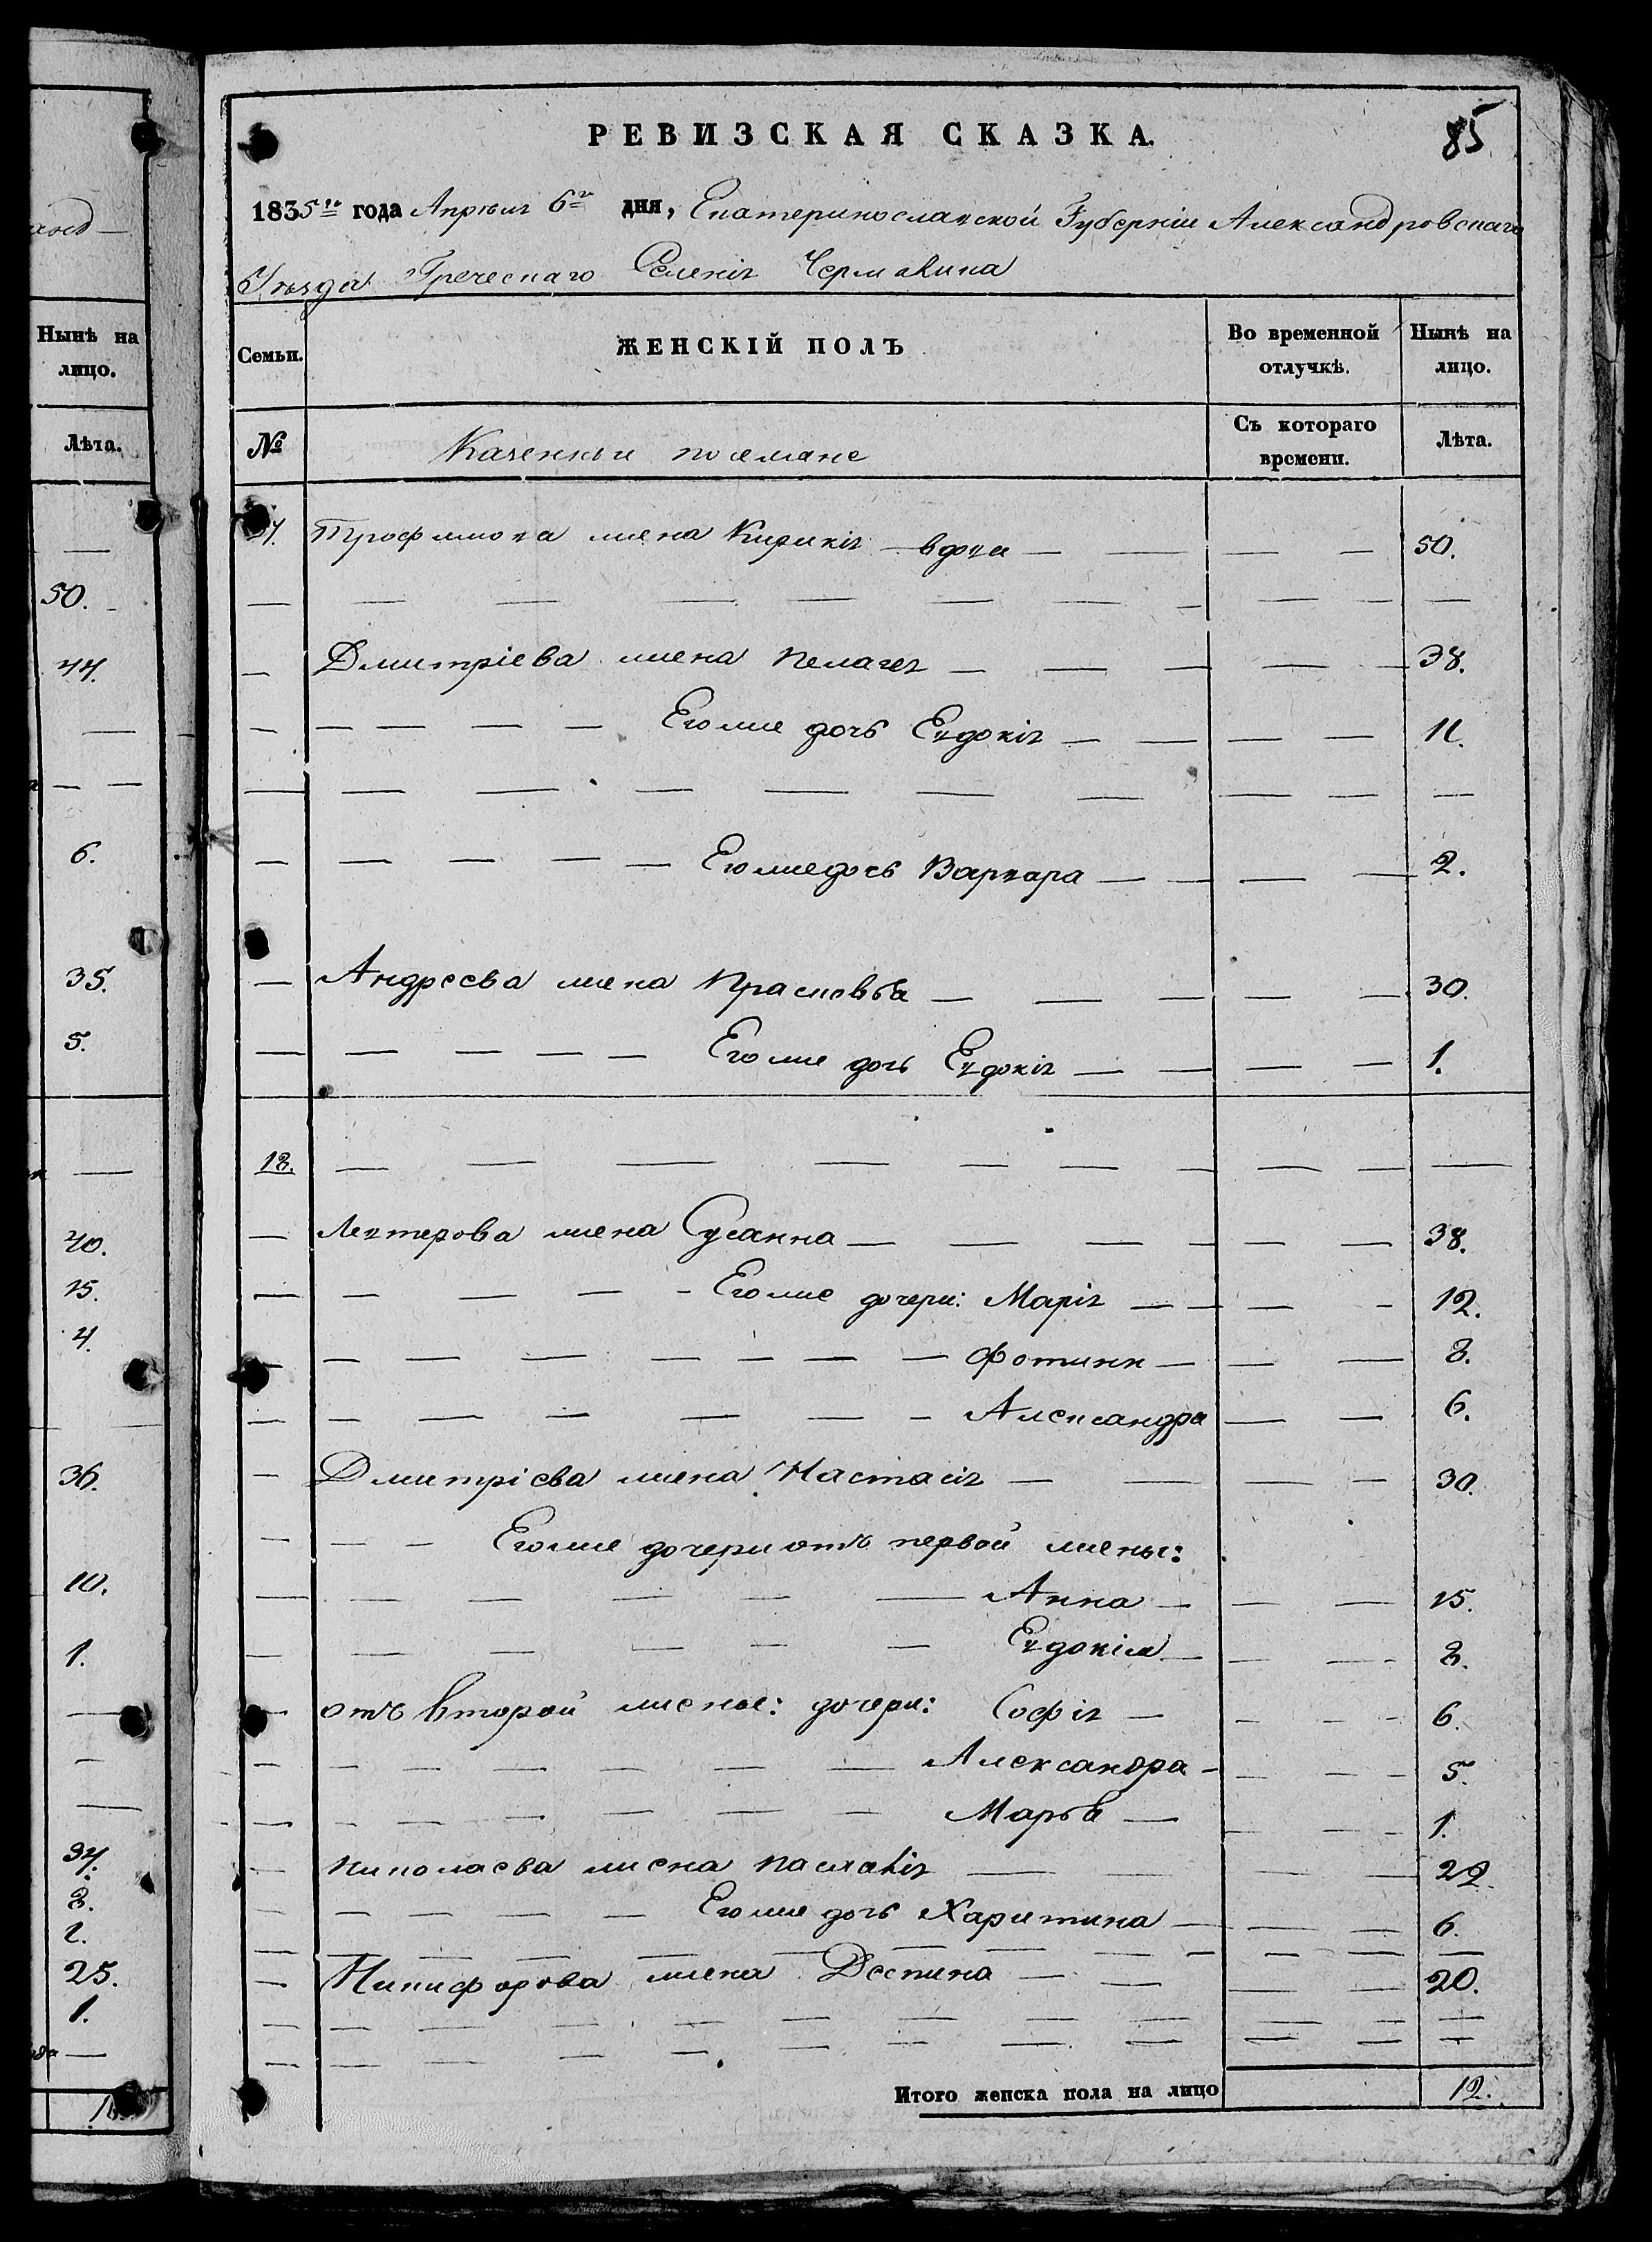 РЕВИЗСКАЯ СКАЗКА.
85
1835го года Апреля 6го дня, Екатеринославской Губерніи Александровскаго
Уезда Греческаго Селенія Чермалика
Семьи.
ЖЕНСКІЙ ПОЛЪ
Во временной отлучкѣ.
Нынѣ на лицо.
№
Казенныи поселяне
Съ котораго времени.
Лѣта.
Трофимова жена Кирикія — вдова — 50.
Дмитріева жена Пелагея — 38.
Его же дочь Евдокія — 11.
Его же дочь Варвара — 2.
Андреева жена Прасковья — 30.
Его же дочь Евдокія — 1.
18.
Левтерова жена Сусанна — 38.
Его же дочери: Марія — 12.
Фотини — 8.
Александра — 6.
Дмитріева жена Настасія — 30.
Его же дочери отъ первой жены:
Анна — 15.
Евдокія — 8.
отъ второй жены: дочери: Софія — 6.
Александра — 5.
Марья — 1.
Николаева жена — 22.
Его же дочь Харитина — 6.
Никифорова жена Деспина — 20.
Итого женска пола на лицо 12.
Нынѣ на лицо.
Лѣта.
50.
44.
6.
35.
5.
40.
15.
4.
36.
10.
1.
8.
2.
25.
1.